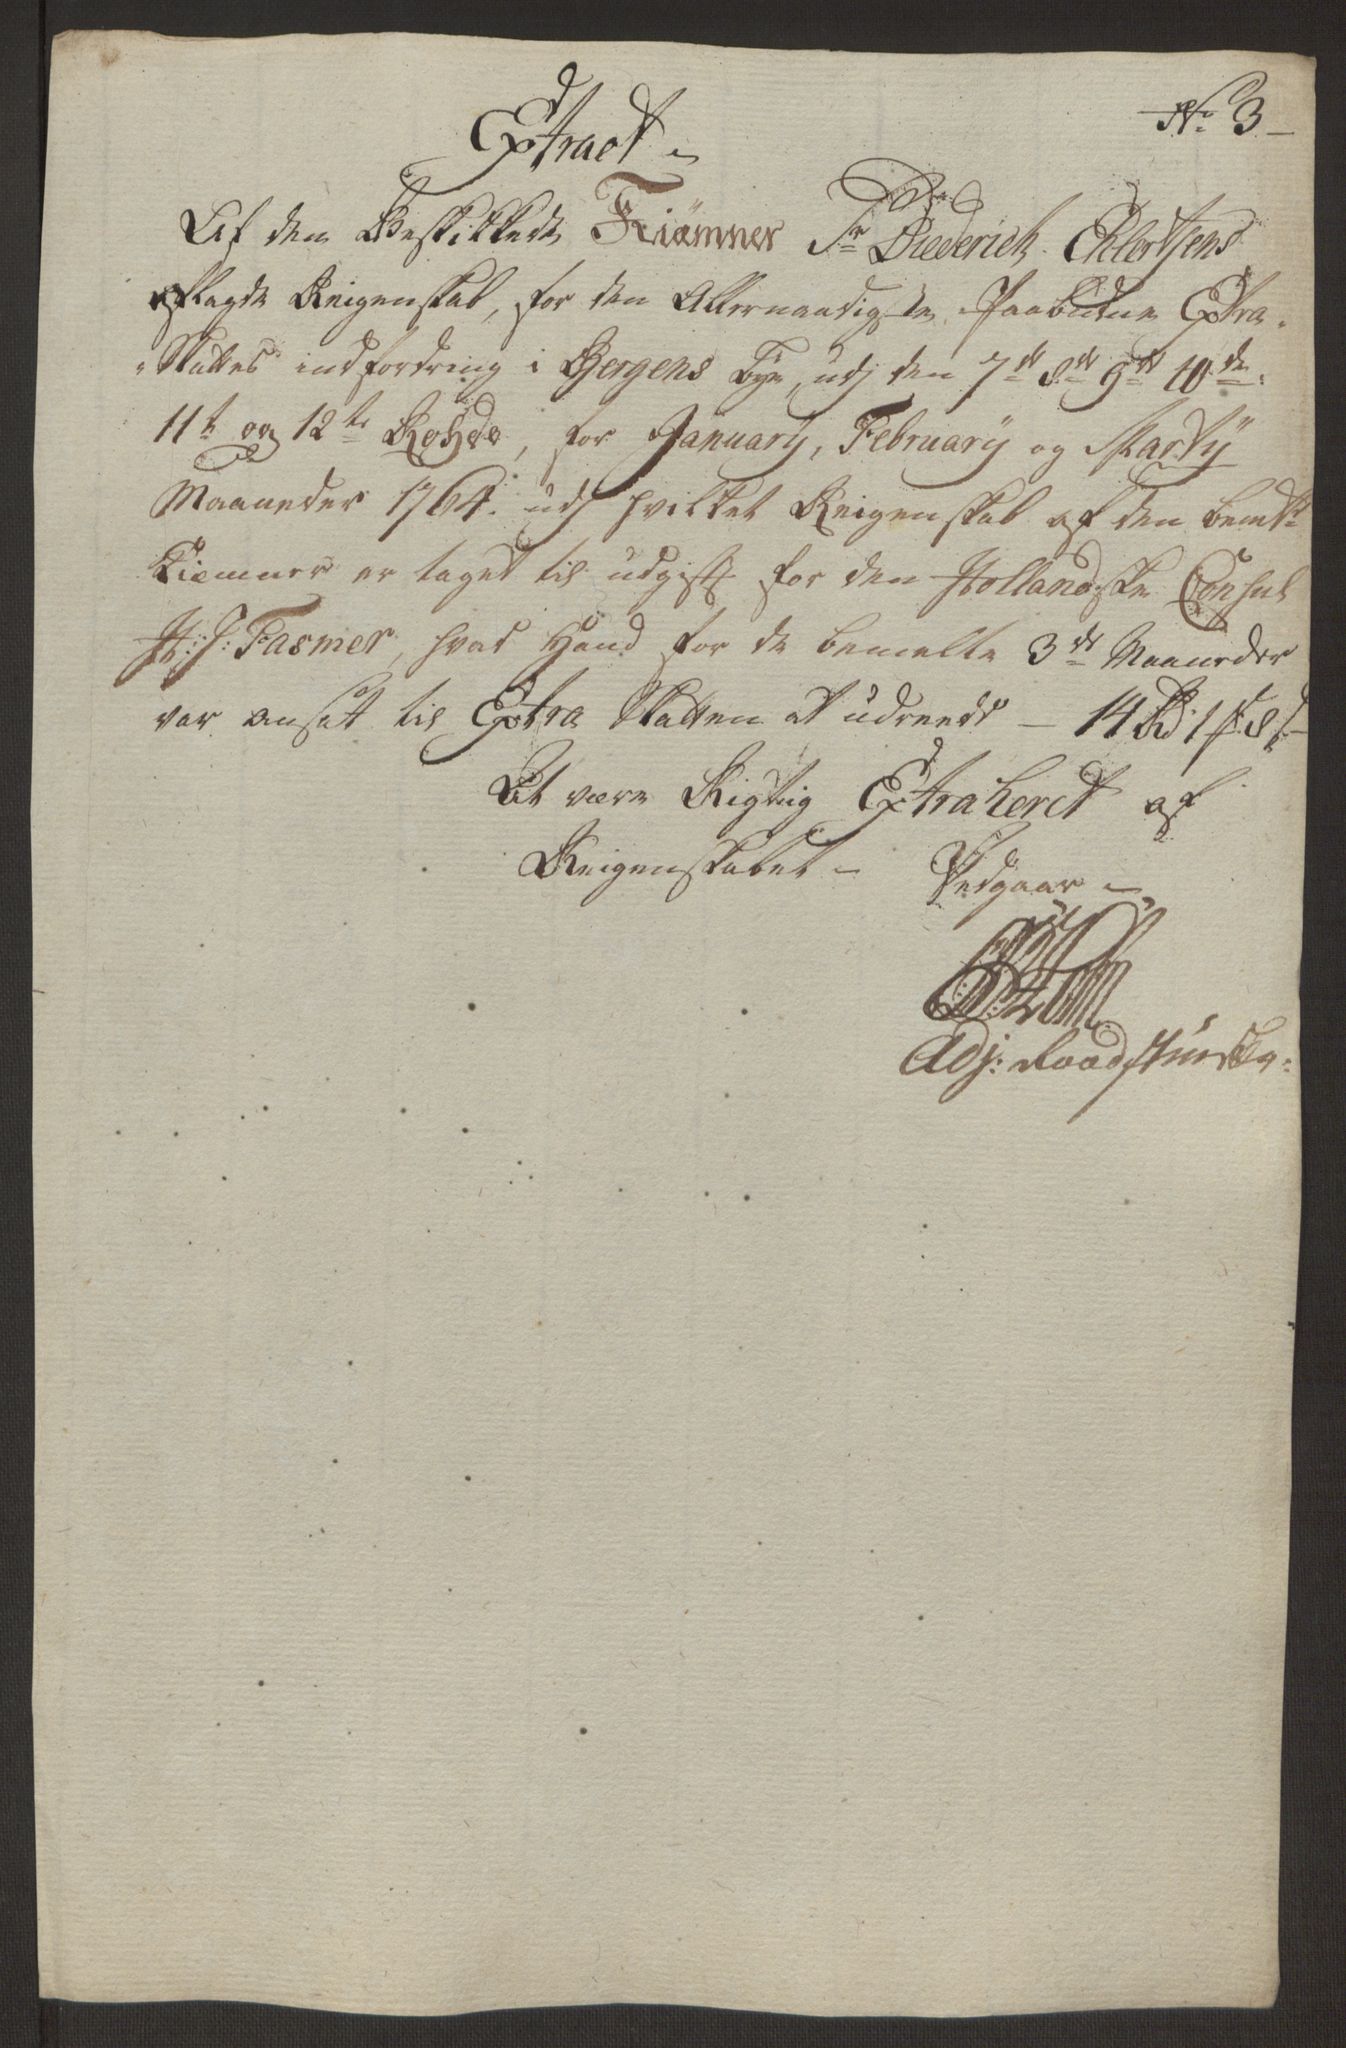 No 3
Extract
Af den Beskikkede Kiæmner Sr Diederich Ehlertsens
aflagde Reigenskab, for den Allernaadigste Paabudne Extra
Skattes indfordring i Bergens Bye, udj den 7de 8de 9de 10de
11te og 12te Rohde, for January, February og Marty
Maaneder 1764. udj hvilket Reigenskab af den bemte
Kiemner er taget til udgift for den Hollandske Consul
H: J: Fasmer, hvad Hand for de bemelte 3de Maaneder
var ansatt til Extra Skatten at udreede — 14 Rd 1 ß
At være Rigtig Extraheret af
Reigenskabet Vedgaar
Adj: Raadstue